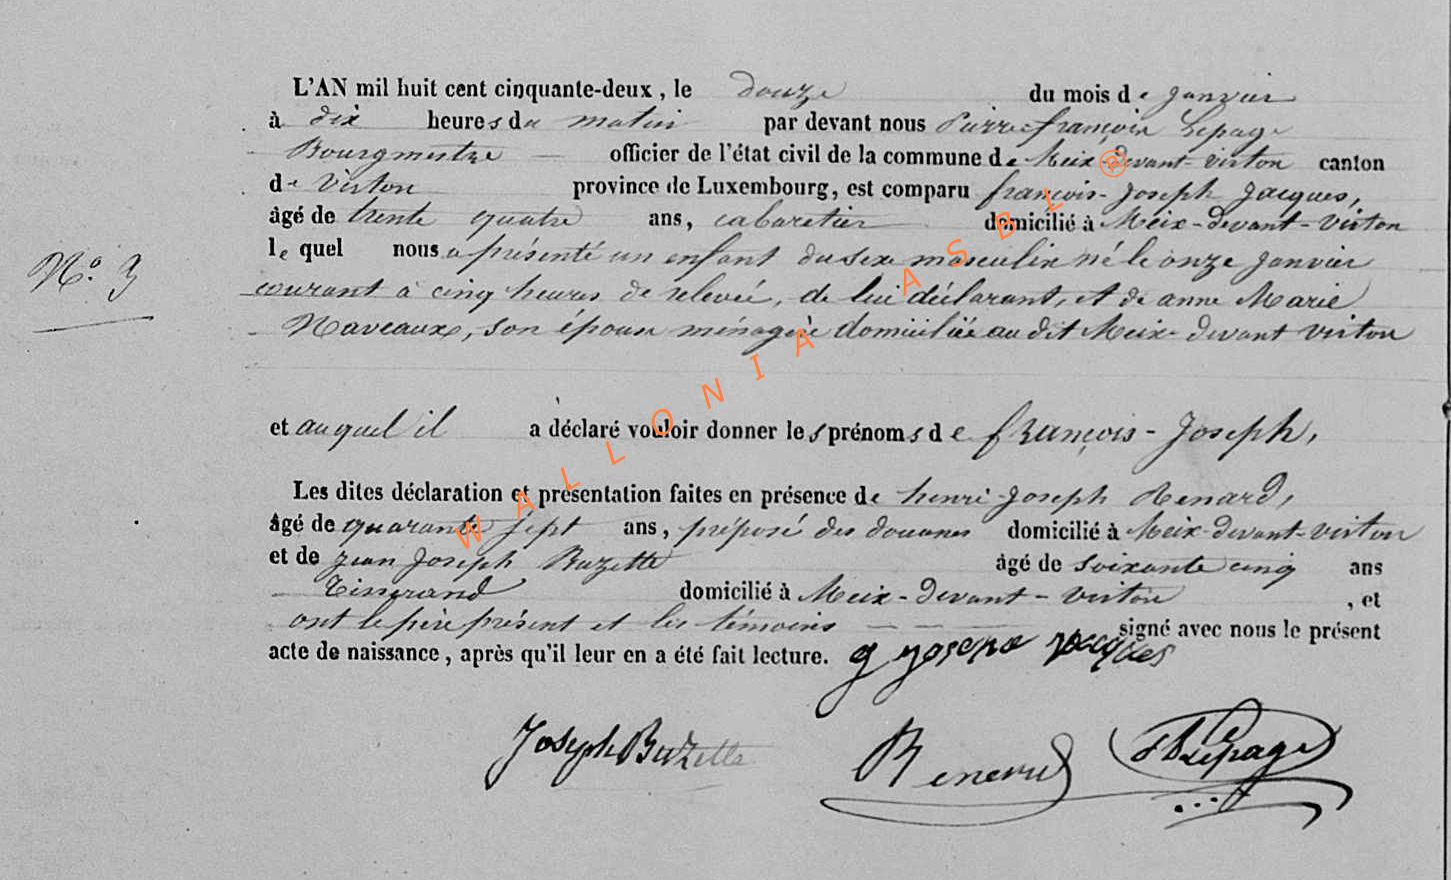 L'AN mil huit cent cinquante-deux, le douze du mois de janvier
à dix heures du matin par devant nous Pierre françois Lepage
Bourgmestre officier de l'état civil de la commune de Meix-devant-virton canton
de Virton province de Luxembourg, est comparu françois-Joseph Jacques,
âgé de trente quatre ans, cabaretier domicilié à Meix-devant-virton
le quel nous a présenté un enfant du sexe masculin né le onze janvier
N° 3
courant à cinq heures de relevée, de lui déclarant, et de anne Marie
Naveaux, son épouse ménagère domiciliée au dit Meix-devant virton
et auquel il a déclaré vouloir donner les prénoms de françois-Joseph,
Les dites déclaration et présentation faites en présence de henri-Joseph Renard,
âgé de quarante sept ans, préposé des douanes domicilié à Meix-devant-virton
et de jean Joseph Buzette âgé de soixante cinq ans
Tisserand domicilié à Meix-devant-virton, et
ont le père présent et les témoins signé avec nous le présent
acte de naissance, après qu'il leur en a été fait lecture. joseph jacques
Joseph Buzette Renard Lepage
WALLONIA ASBL ®